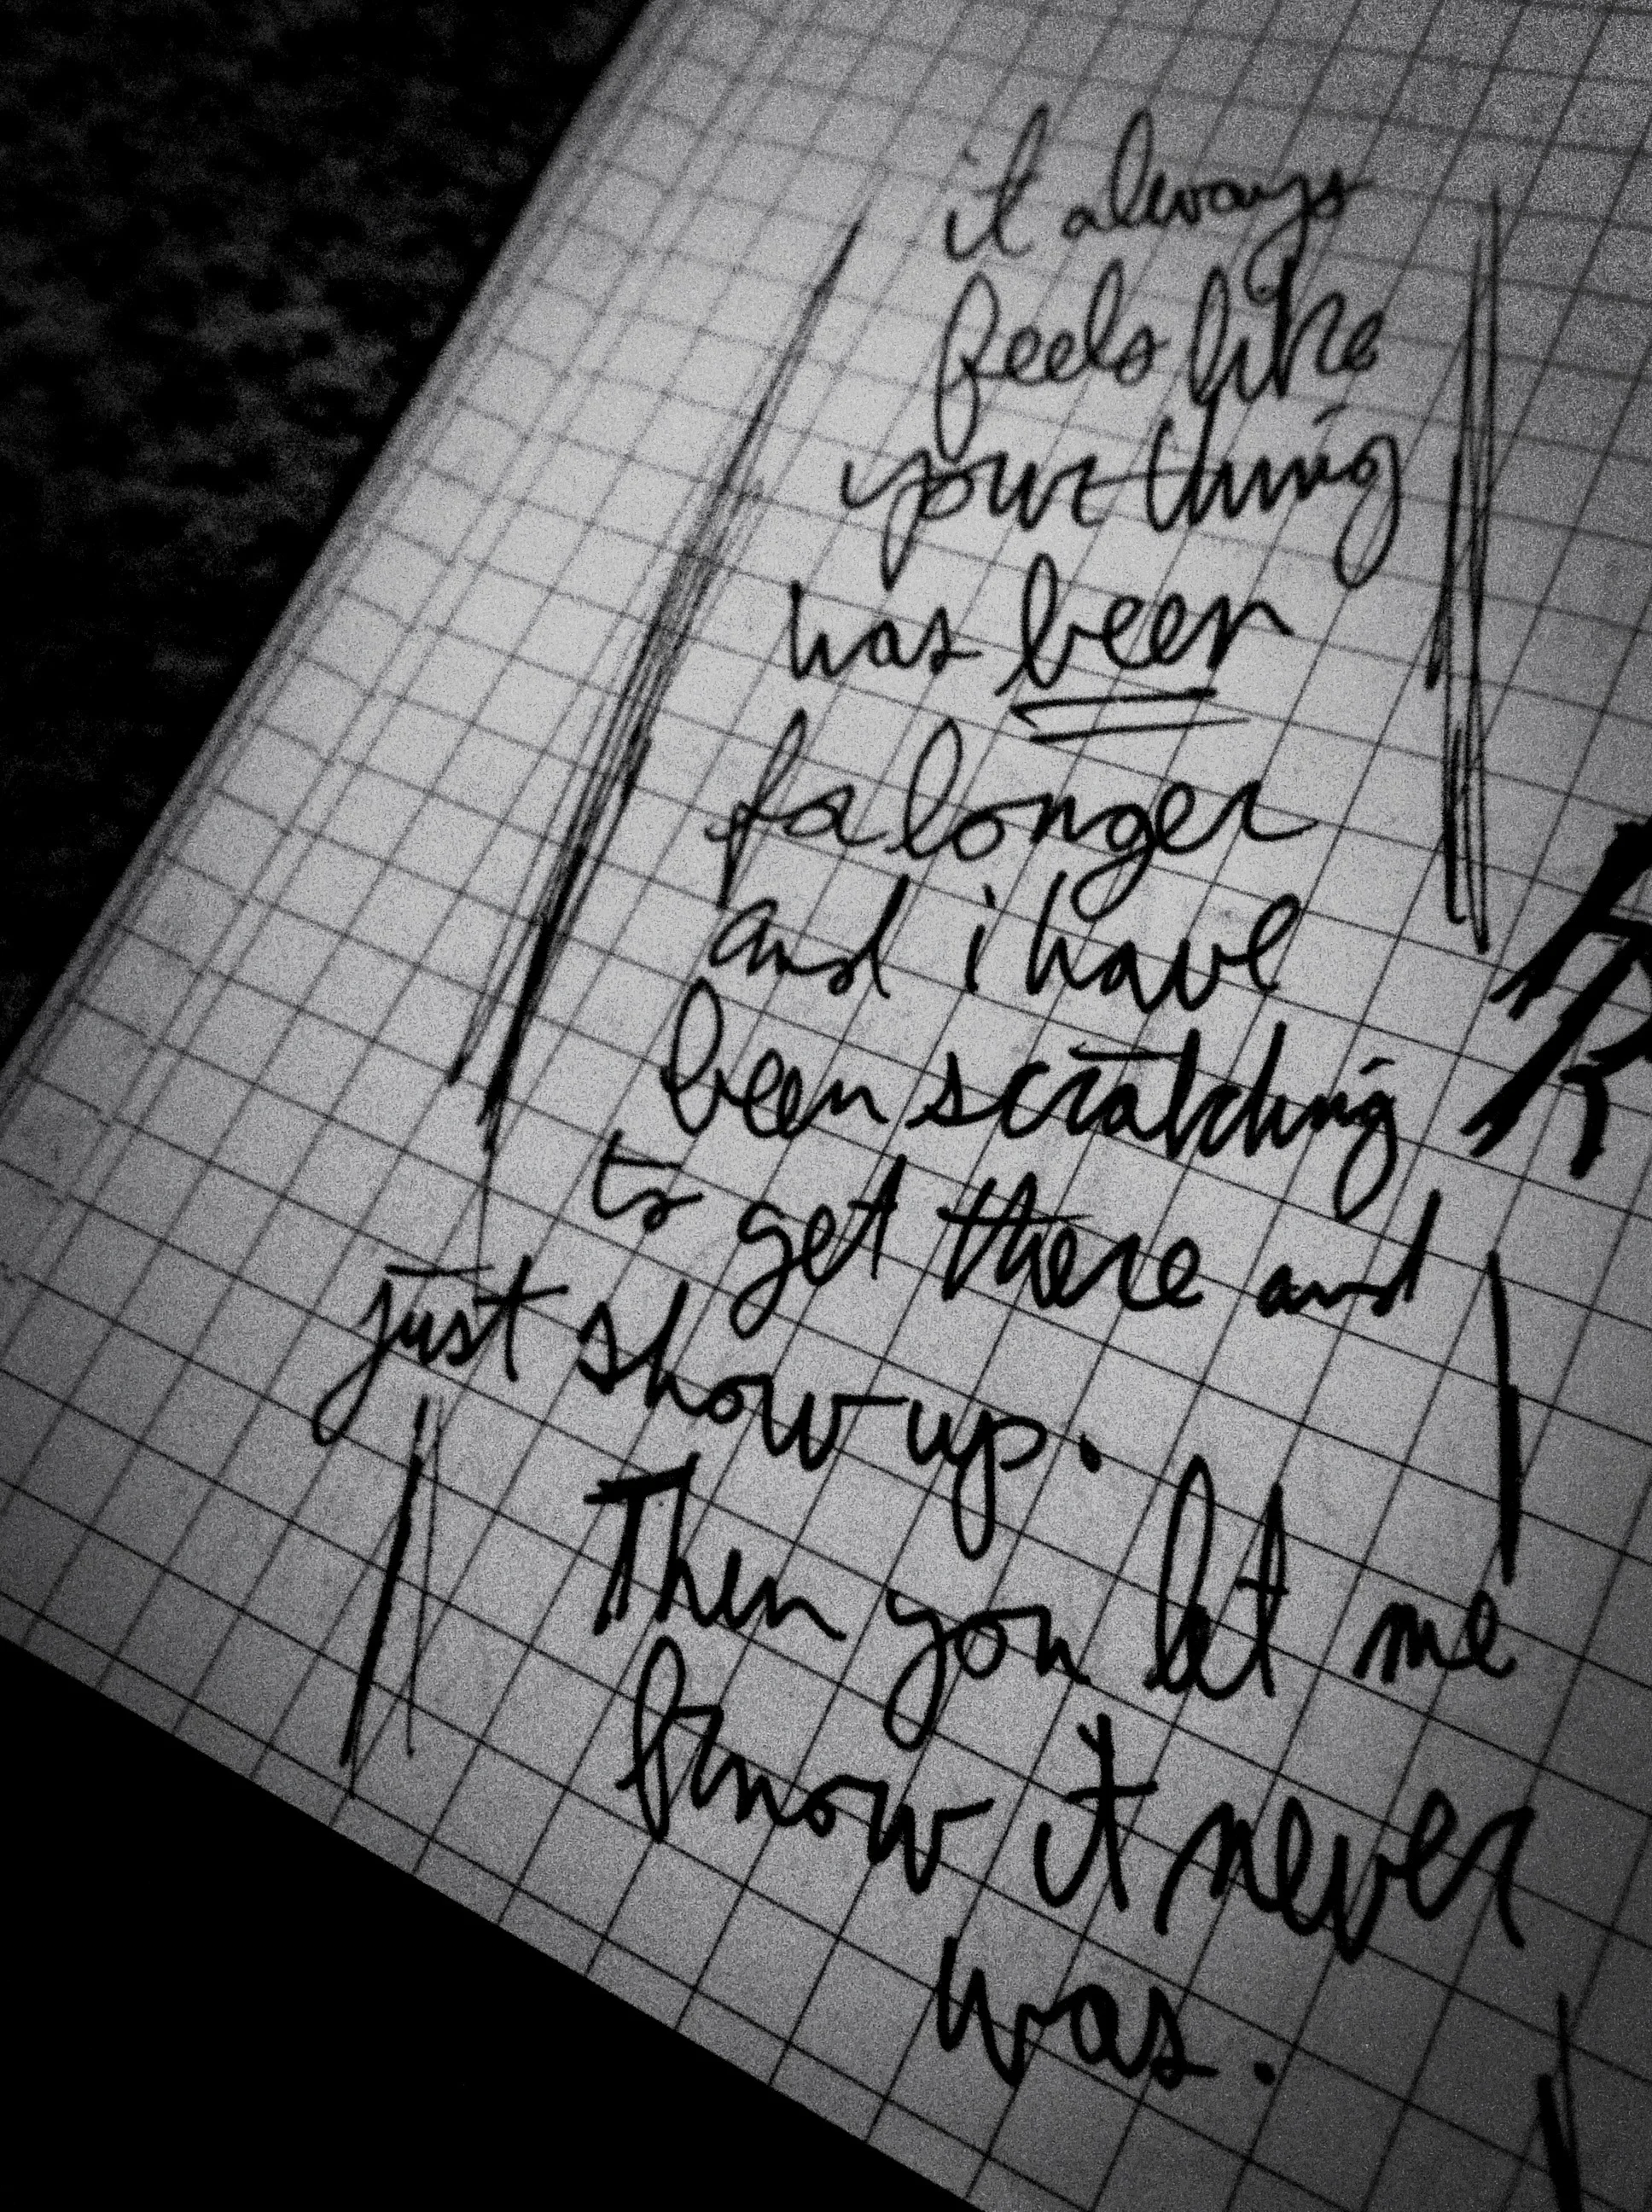 it always
feels like
your thing
has been
fa longer
and i have
been scratching
to get there and
just show up.
Then you let me
know it never
was.